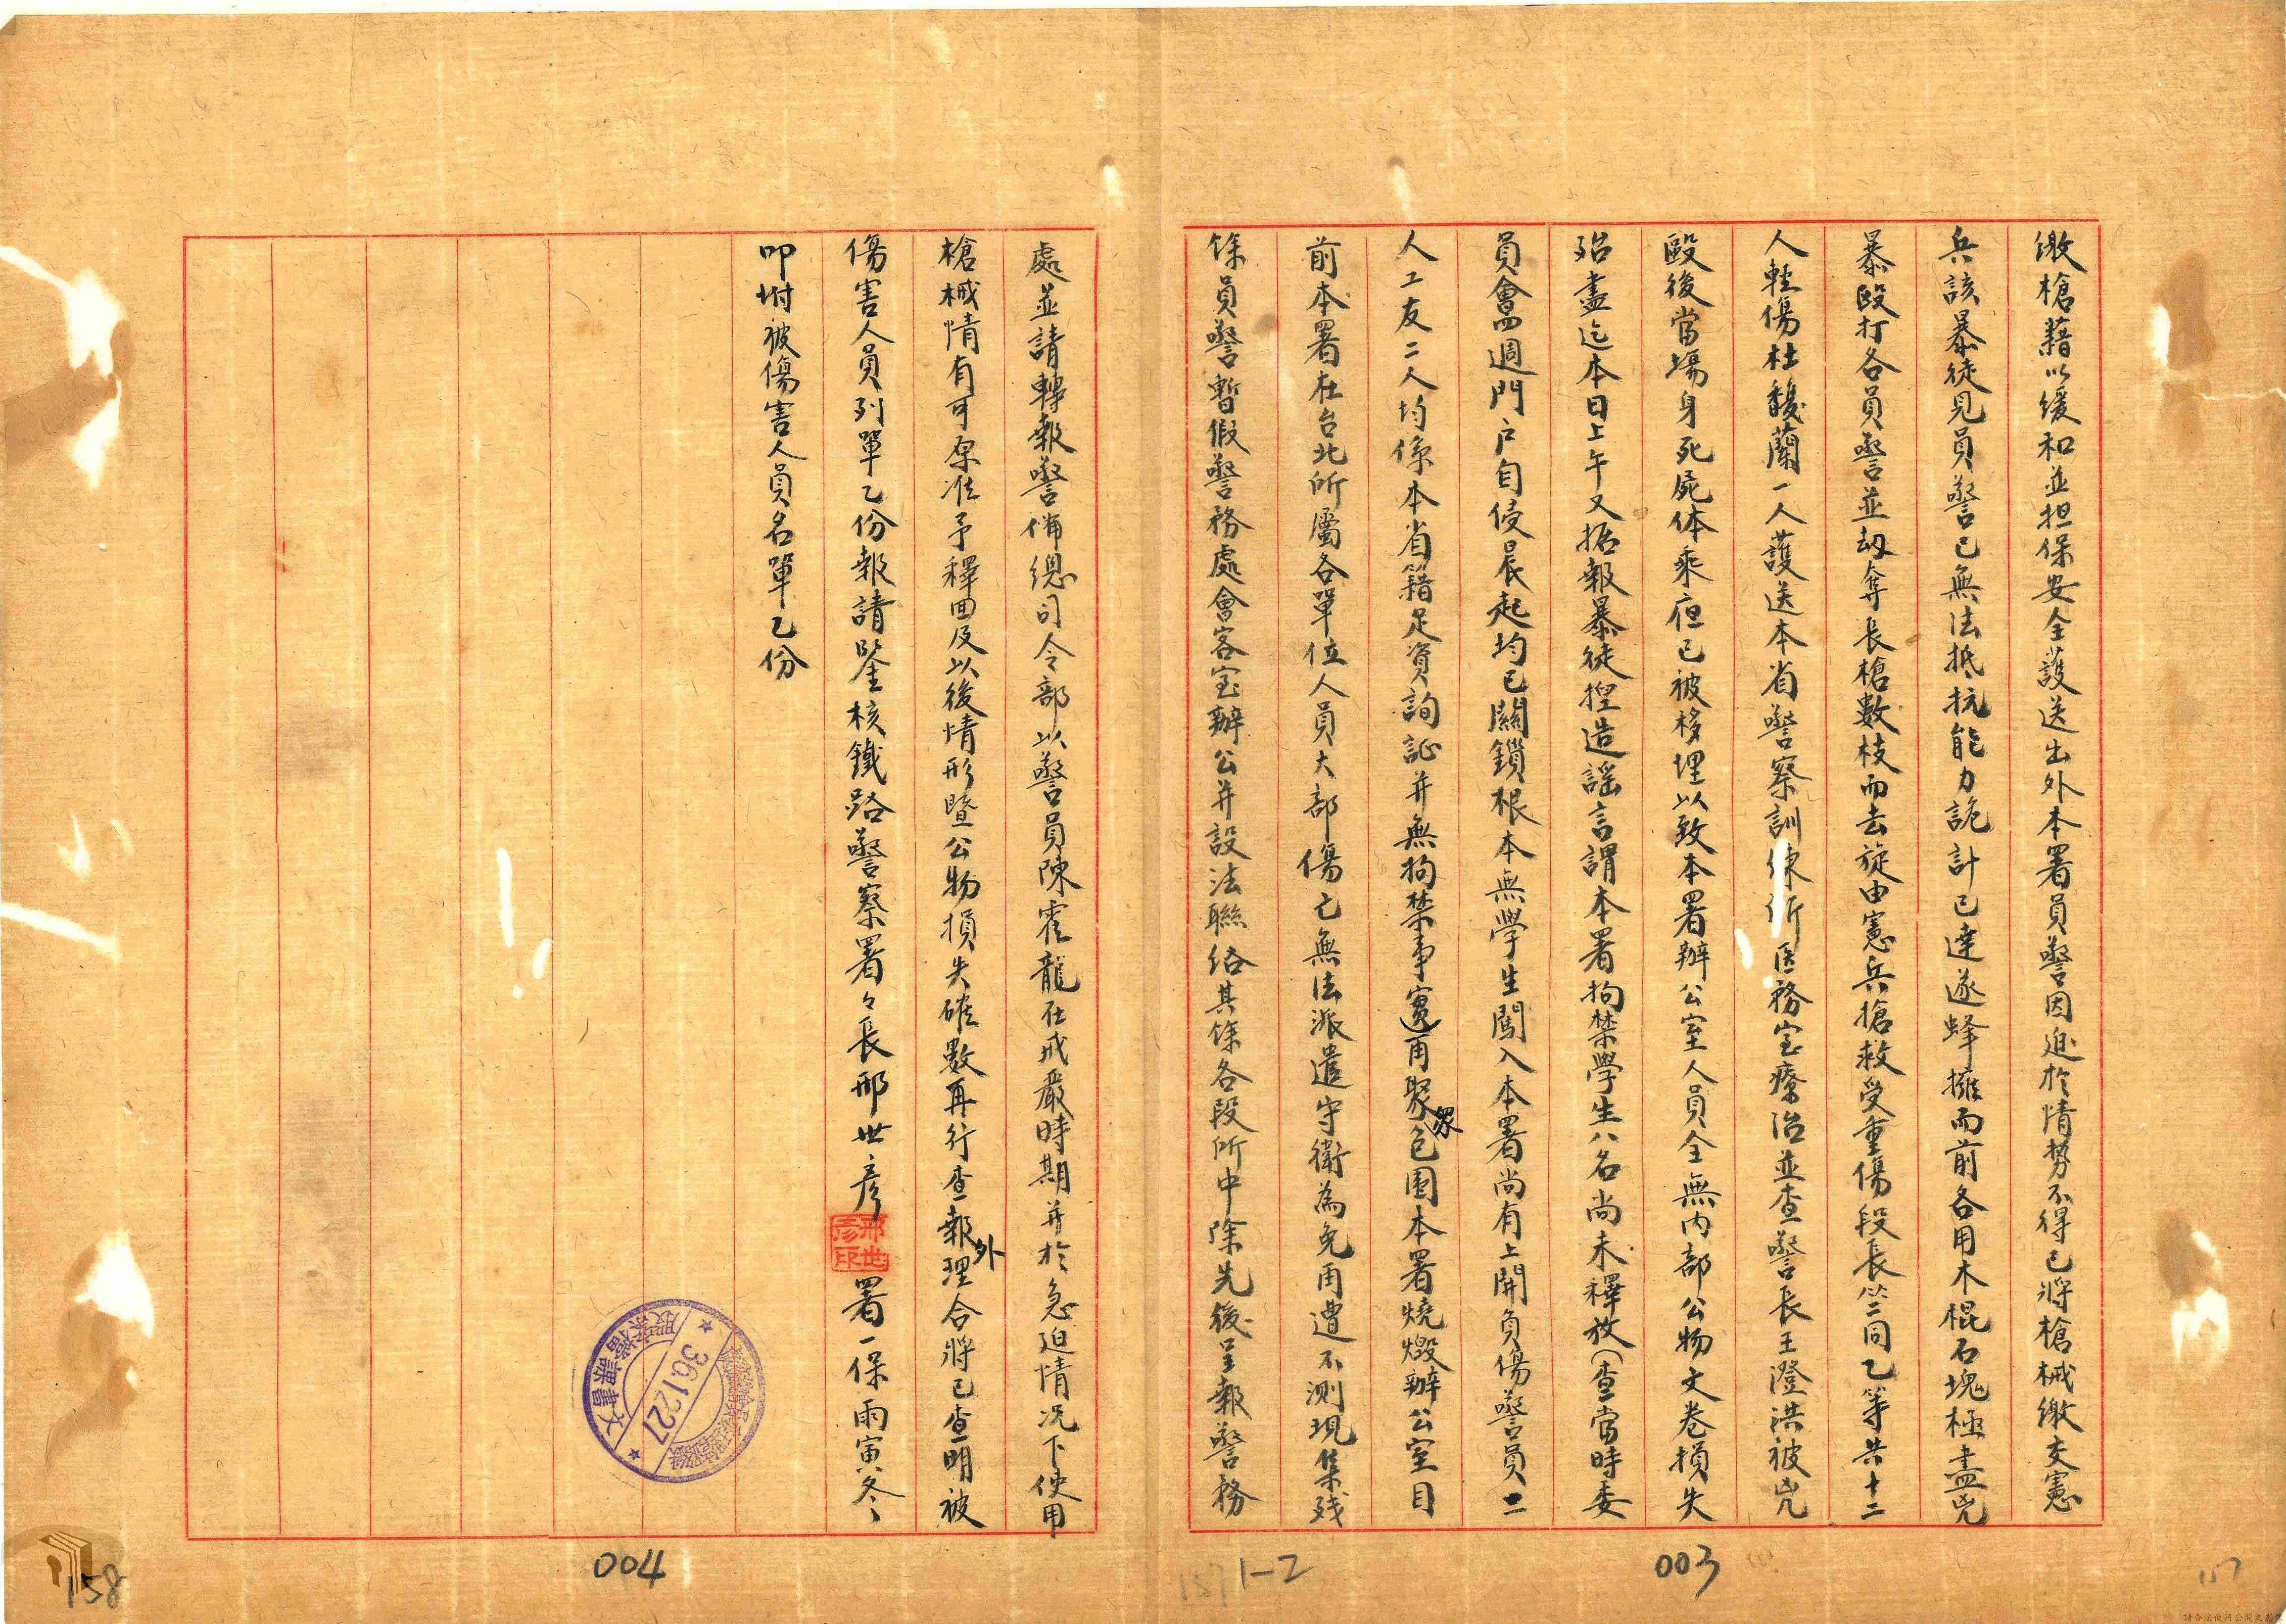 繳槍藉以緩和並担保安全護送出外本署員警因迫於情勢不得已將槍械繳交憲
兵該暴徒見員警已無法抵抗能力詭計已達遂蜂擁而前各用木棍石塊極盡兇
暴毆打各員警並刼奪長槍數枝而去旋由憲兵搶救受重傷段長竺同乙等共十二
人輕傷杜馥蘭一人護送本省警察訓練所医務室療治並查警長王澄洪被兇
毆後當場身死屍体乘夜已被移埋以致本署辦公室人員全無內部公物文卷損失
殆盡迄本日上午又据報暴徒揑造謠言謂本署拘禁學生八名尚未釋放(查當時委
員會四週門户自侵晨起均已關鎖根本無學生闖入本署尚有上開負傷警員二
人工友二人均係本省籍足資詢証并無拘禁事實)再聚眾包围本署燒燬辦公室目
前本署在台北所屬各單位人員大部傷亡無法派遣守衛為免再遭不测現集残
餘員警暫假警務處會客室辦公并設法聯络其餘各段所中除先後呈報警務
處並請轉報警備總司令部以警員陳霍龍在戒嚴時期并於急迫情况下使用
槍械情有可原准予釋回及以後情形暨公物損失確數再行查報外理合將已查明被
傷害人員列單乙份報請鑒核鐵路警察署々長邢世彥
邢世彥印
署一保雨寅冬、
叩坿被傷害人員名單乙份
文書課檔案股
36.12.27
004
1-2
003
157
158
157
請合法使用公開之影像